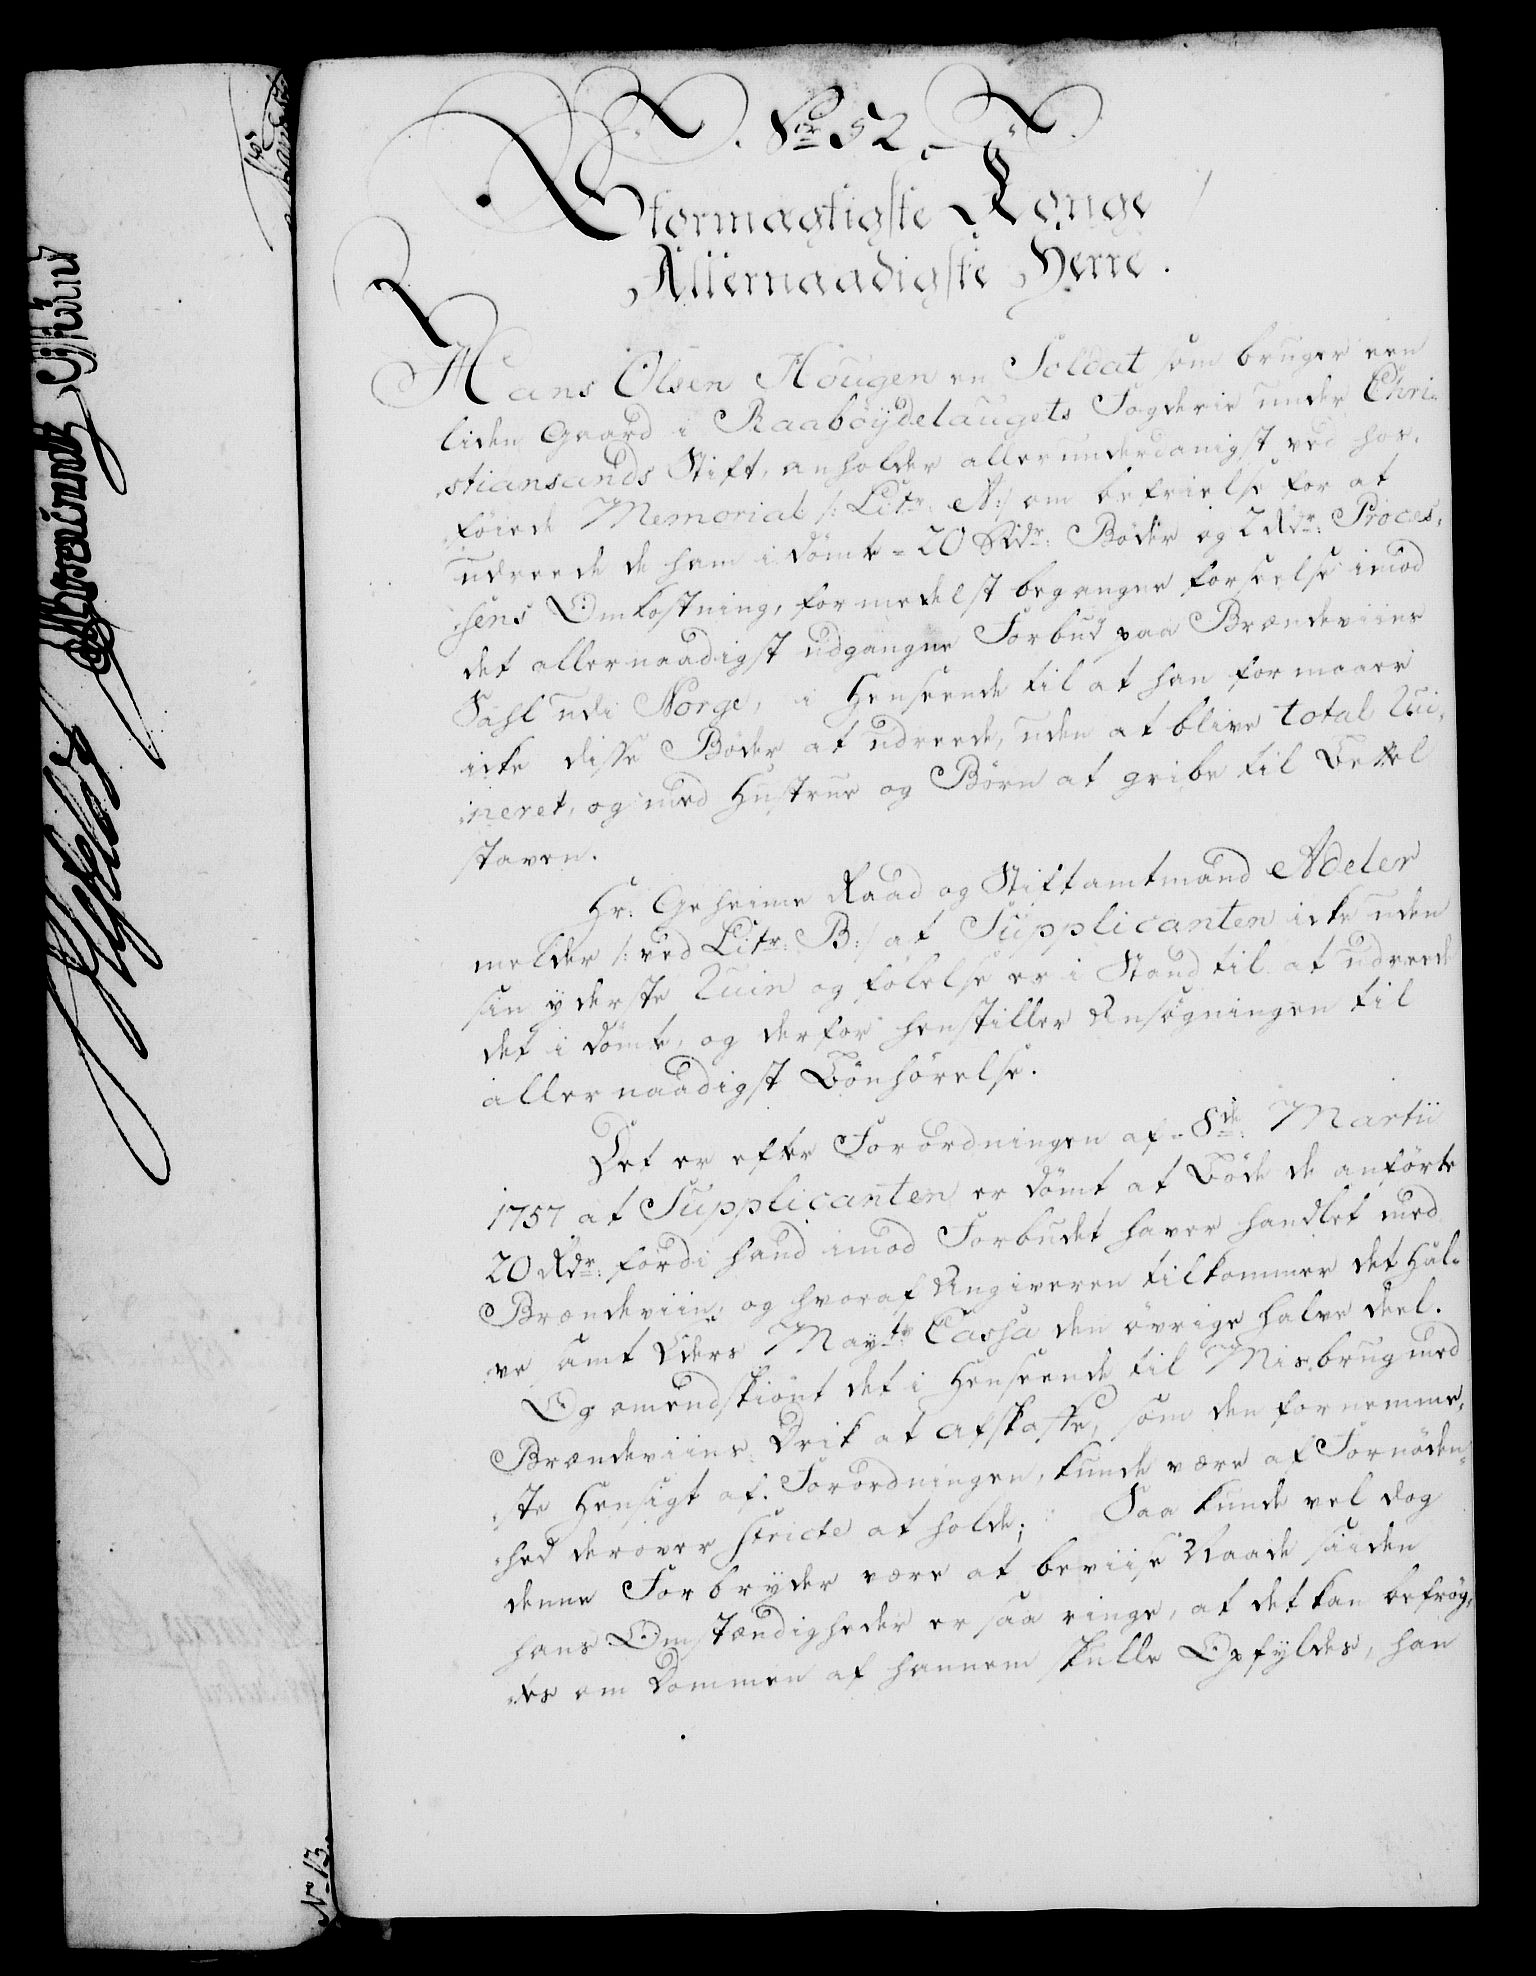 No 52.
Stormægtigste Konge
Allernaadigste Herre.
Hans Olsen Hougen en Soldat som bruger een
liden Gaard i Raabøydelaugets Fogderie under Chri-
stiansands Stift, anholder allerunderdanigst ved hos-
føiede Memorial /: Litr: A:/ om befrielse for at
udreede de ham idømte 20 Rdr: Bøder og 2 Rdr: Proces-
sens Omkostning, formedelst begangne forseelse imod
det allernaadigst udgangne Forbud paa Brændeviins
Sahl udi Norge, i Henseende til at han formaaer
icke disse Bøder at udreede, uden at blive total rui-
neret, og med Hustrue og Børn at gribe til Bettel
staven.
Hr. Geheime Raad og Stiftamtmand Adeler
melder /: ved Litr: B:/ at Supplicanten icke uden
sin yderste Ruin og følelse er i Stand til at udreede
det idømte, og derfor henstiller Ansøgningen til
allernaadigst Bønhørelse.
Det er efter Forordningen af 8de Martii
1757 at Supplicanten er dømt at Bøde de anførte
20 Rdr: fordi hand imod Forbudet haver handlet med
Brændeviin, og hvoraf Angiveren tilkommer det hal-
ve samt Eders Mayts Cassa den øvrige halve deel.
Og omendskiønt det i Henseende til Misbrug med
Brændeviins Drik at afskaffe, som den fornemme-
ste Hensigt af Forordningen, kunde være af Fornøden-
hed derover stricte at holde; Saa kunde vel dog
denne Forbryder være at beviise Naade siiden
hans Omstændigheder er saa ringe, at det kan befryg-
tes om Dommen af hannem skulle Opfyldes, han
No 13.